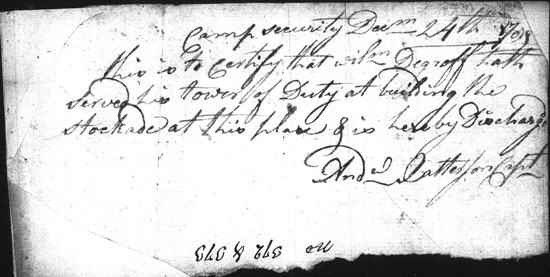 Camp security Decm 24th
this is to Certify that wilm Degroff hath
served his tower of Duty at building the
stockade at this place & is hereby Discharge
And Patterson Capt
No 372 & 373